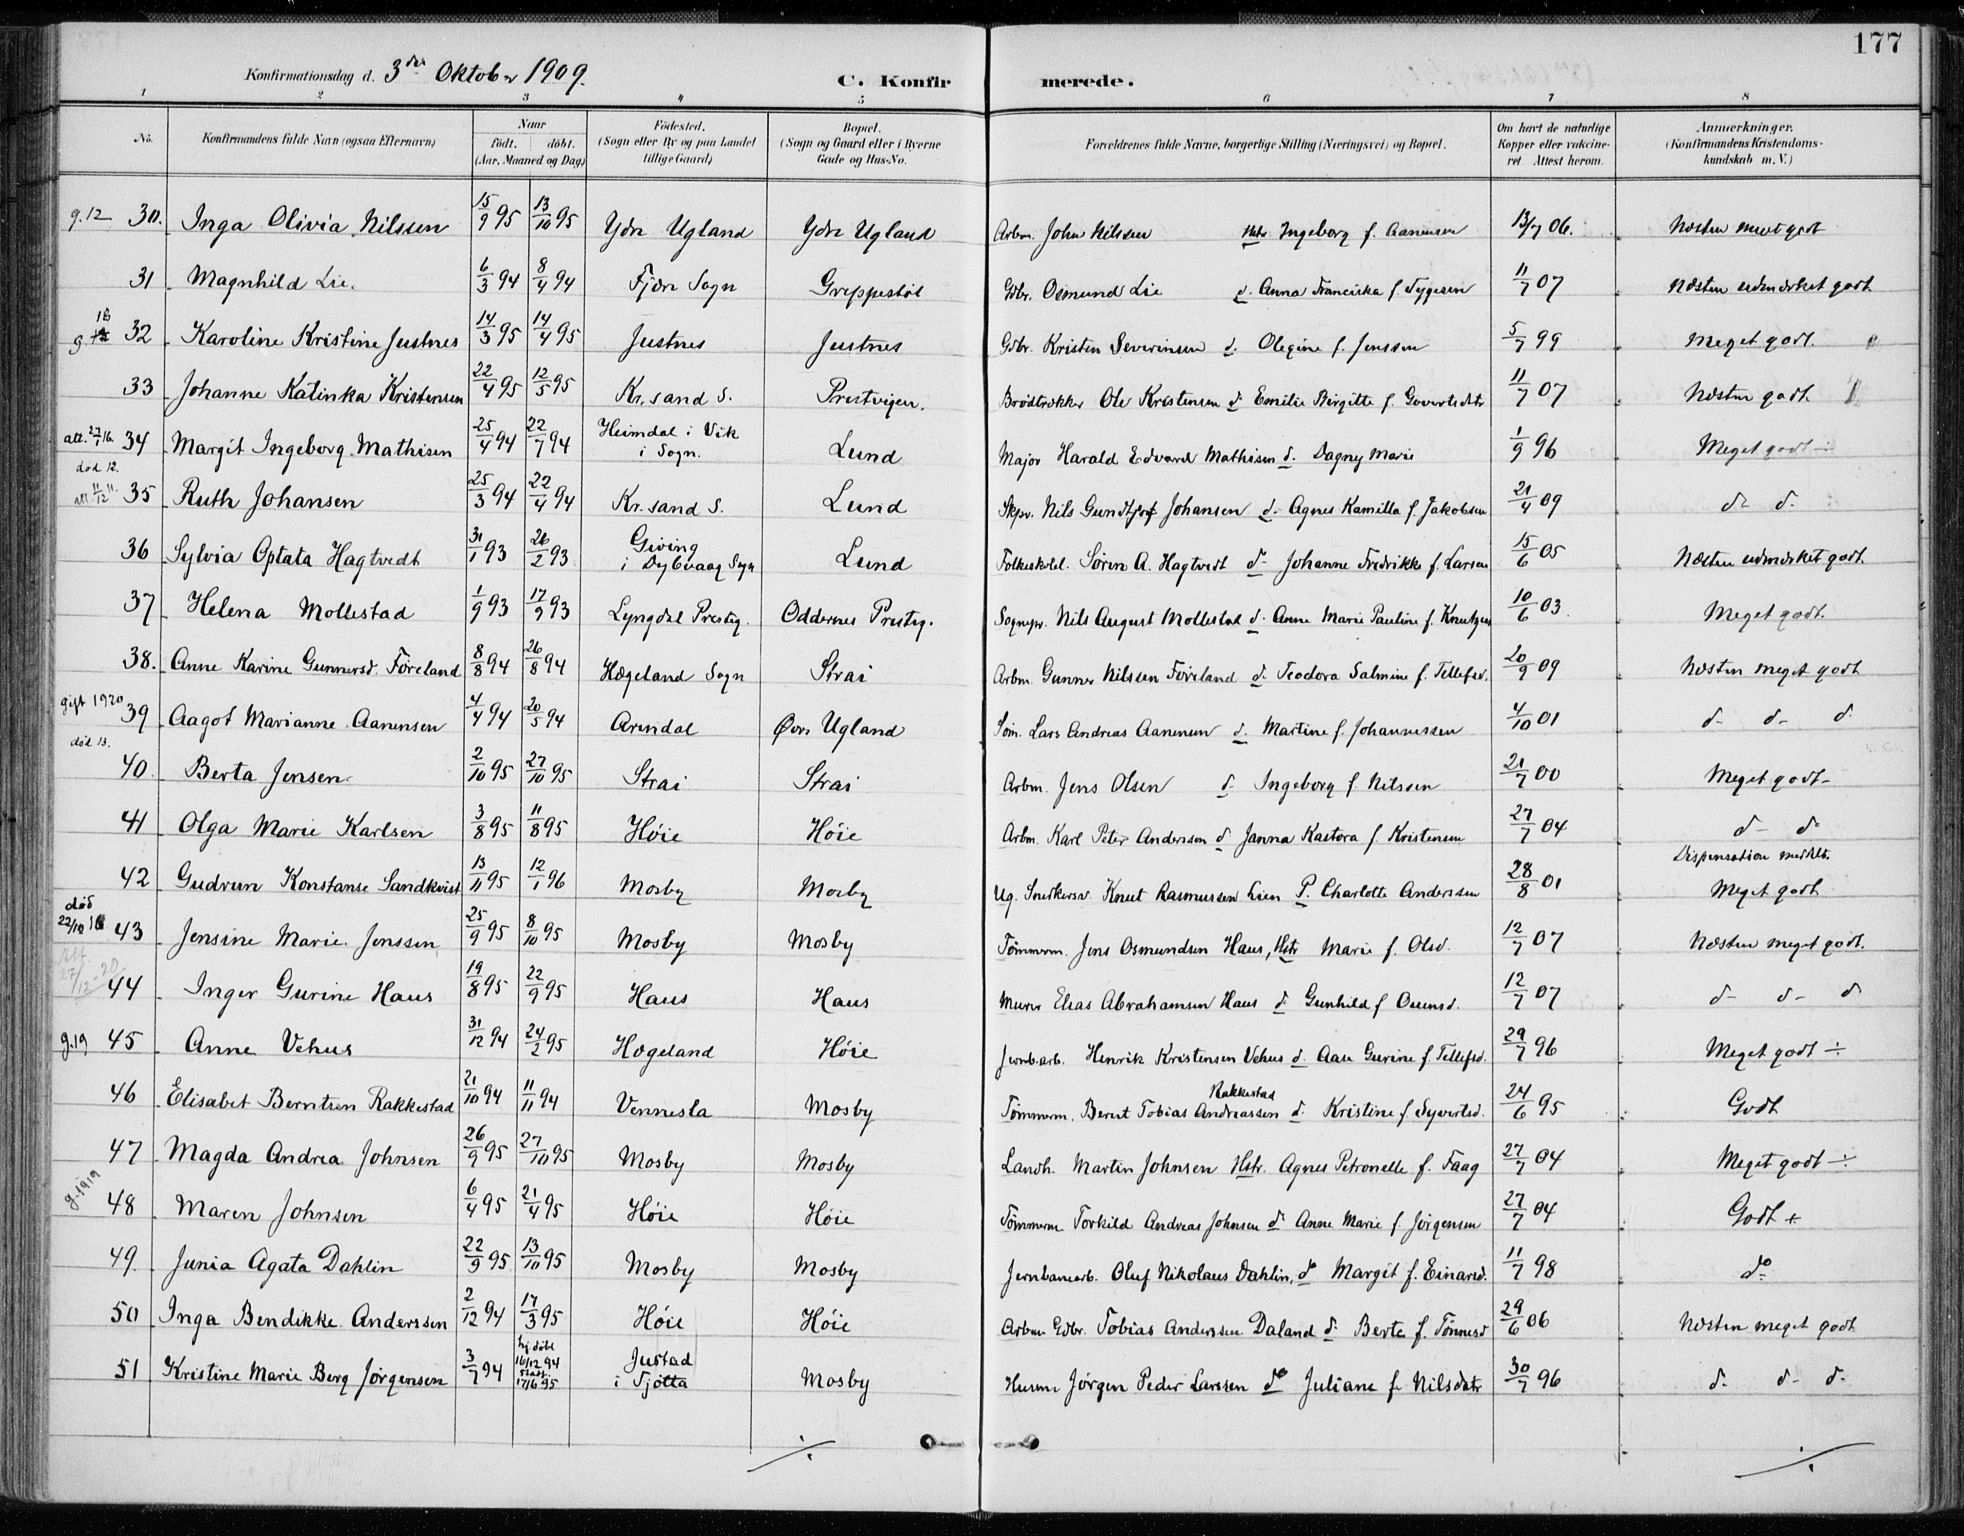 177
Konfirmationsdag d. 3die Oktober 1909.
C. Konfirmerede.
1 2 3 4 5 6 7 8
No. | Konfirmandens fulde Navn (ogsaa Efternavn) | Naar født. døbt. (Aar, Maaned og Dag) | Fødested. (Sogn eller By og paa Landet tillige Gaard) | Bopæl. (Sogn og Gaard eller i Byerne Gade og Hus-No. | Forældrenes fulde Navne, borgerlige Stilling (Næringsvei) og Bopæl. | Om havt de naturlige Kopper eller vakcineret. Attest herom. | Anmærkninger. (Konfirmandens Kristendomskundskab m. V.)
g.12 30. Inga Olivia Nilssen 15/9 95 13/10 95 Ydre Ugland Ydre Ugland Arbm. John Nilssen Hstr. Ingeborg f. Aanensen 13/7 06. Næsten meget godt
31 Magnhild Lie. 6/3 94 8/4 94 Fjære Sogn Greppestøl Gdbr. Osmund Lie d. Anna Franciska f. Tygesen 11/7 07 Næsten udmærket godt
g 16 32 Karoline Kristine Justnes 14/3 95 14/4 95 Justnes Justnes Gdbr. Kristen Severinsen d. Olegine f. Jenssen 5/7 99 Meget godt.
33 Johanne Katinka Kristensen 22/4 95 12/5 95 Kr.sand S. Prestvigen. Ole Kristensen d. Emilie Birgitte f. 11/7 07 Næsten godt
att. 27/7 16. 34 Margit Ingeborg Mathisen 25/4 94 22/7 94 Heimdal i Vik i Sogn. Lund Major Harald Edvard Mathisen d. Dagny Marie 1/9 96 Meget godt ÷
død 12.
att. 11/12 11. 35 Ruth Johansen 25/3 94 22/4 94 Kr.sand S. Lund Skpr. Nils Johansen d. Agnes Kamilla f. Jakobsen 21/4 09 d- d-
36 Sylvia Optata Hagtvedt 31/1 93 26/2 93 Giving i Dybvaag Sogn Lund Folkeskolel. Søren A. Hagtvedt d- Johanne Fredrikke f. Larsen 15/6 05 Næsten udmærket godt
37 Helena Mollestad 1/9 93 17/9 93 Lyngdal Prestg. Oddernes Prestg. Sognepr. Nils August Mollestad d. Anne Marie Pauline f. Knutzen 10/6 03. Meget godt.
38. Anne Karine Gunnersd. Føreland 8/8 94 26/8 94 Hægeland Sogn Strai Arbm. Gunner Nilssen Føreland d. Teodora Salmine f. Tellefsd. 20/9 09 Næsten meget godt
gift 1920 39 Aagot Marianne Aanensen 4/4 94 20/5 94 Arendal Øvre Ugland Søm. Lars Andreas Aanensen d. Martine f. Johannessen 4/10 01 d- d- d-
død 13.
40. Berta Jensen 2/10 95 27/10 95 Strai Strai Arbm. Jens Olsen d. Ingeborg f. Nilssen 21/7 00 Meget godt-
41 Olga Marie Karlsen 3/8 95 11/8 95 Høie Høie Arbm. Karl Peter Anderssen d. Janna Kastora f. Kristensen 27/7 04 d- d-
Dispensation meddelt.
42 Gudrun Konstanse Sandkvist 13/11 95 12/1 96 Mosby Mosby Ug. Snedkersv. Knut Rasmussen Lien P. Charlotte Anderssen 28/8 01 Meget godt
død
22/10 16 43 Jensine Marie Jenssen 25/9 95 8/10 95 Mosby Mosby Tømmerm. Jens Osmundsen Haus, Hstr Marie f. Olsd. 12/7 07 Næsten meget godt.
Att.
27/12-20 44 Inger Gurine Haus 19/8 95 22/9 95 Haus Haus Murer Elias Abrahamsen Haus d. Gunhild f. 12/7 07 d- d- d
g.19 45 Anne Vehus 31/12 94 24/2 95 Hægeland Høie Jernb.arb. Henrik Kristensen Vehus d. Aase Gurine f. Tellefsd. 29/7 96 Meget godt ÷
46 Elisabet Berntsen Rakkestad 21/10 94 11/11 94 Vennesla Mosby Tømmerm. Bernt Tobias Andreassen Rakkestad d. Kristine f. Syvertsd. 24/6 95 Godt
47 Magda Andrea Johnsen 26/9 95 27/10 95 Mosby Mosby Landh. Martin Johnsen Hstr. Agnes Petronelle f. Faag 27/7 04 Meget godt ÷
g. 1919 48 Maren Johnsen 6/4 95 21/4 95 Høie Høie Tømmerm Torkild Andreas Johnsen d. Anne Marie f. Jørgensen 27/7 04 Godt +
49 Junia Agata Dahlin 22/9 95 13/10 95 Mosby Mosby Jernbanearb. Oluf Nikolaus Dahlin, do Margit f. Einarsd. 11/7 98 do
50 Inga Bendikke Anderssen 2/12 94 17/3 95 Høie Høie Arbm Gdbr. Tobias Anderssen Daland d. Berte f. Tønnesd 29/6 06 Næsten meget godt
51 Kristine Marie Berg Jørgensen 3/7 94 hj.døbt 16/12 94 17/6 95 Justad i Tjøtta Mosby Husm Jørgen Peder Larssen do Juliane f. Nilsdatr 30/7 96 d- d- d-